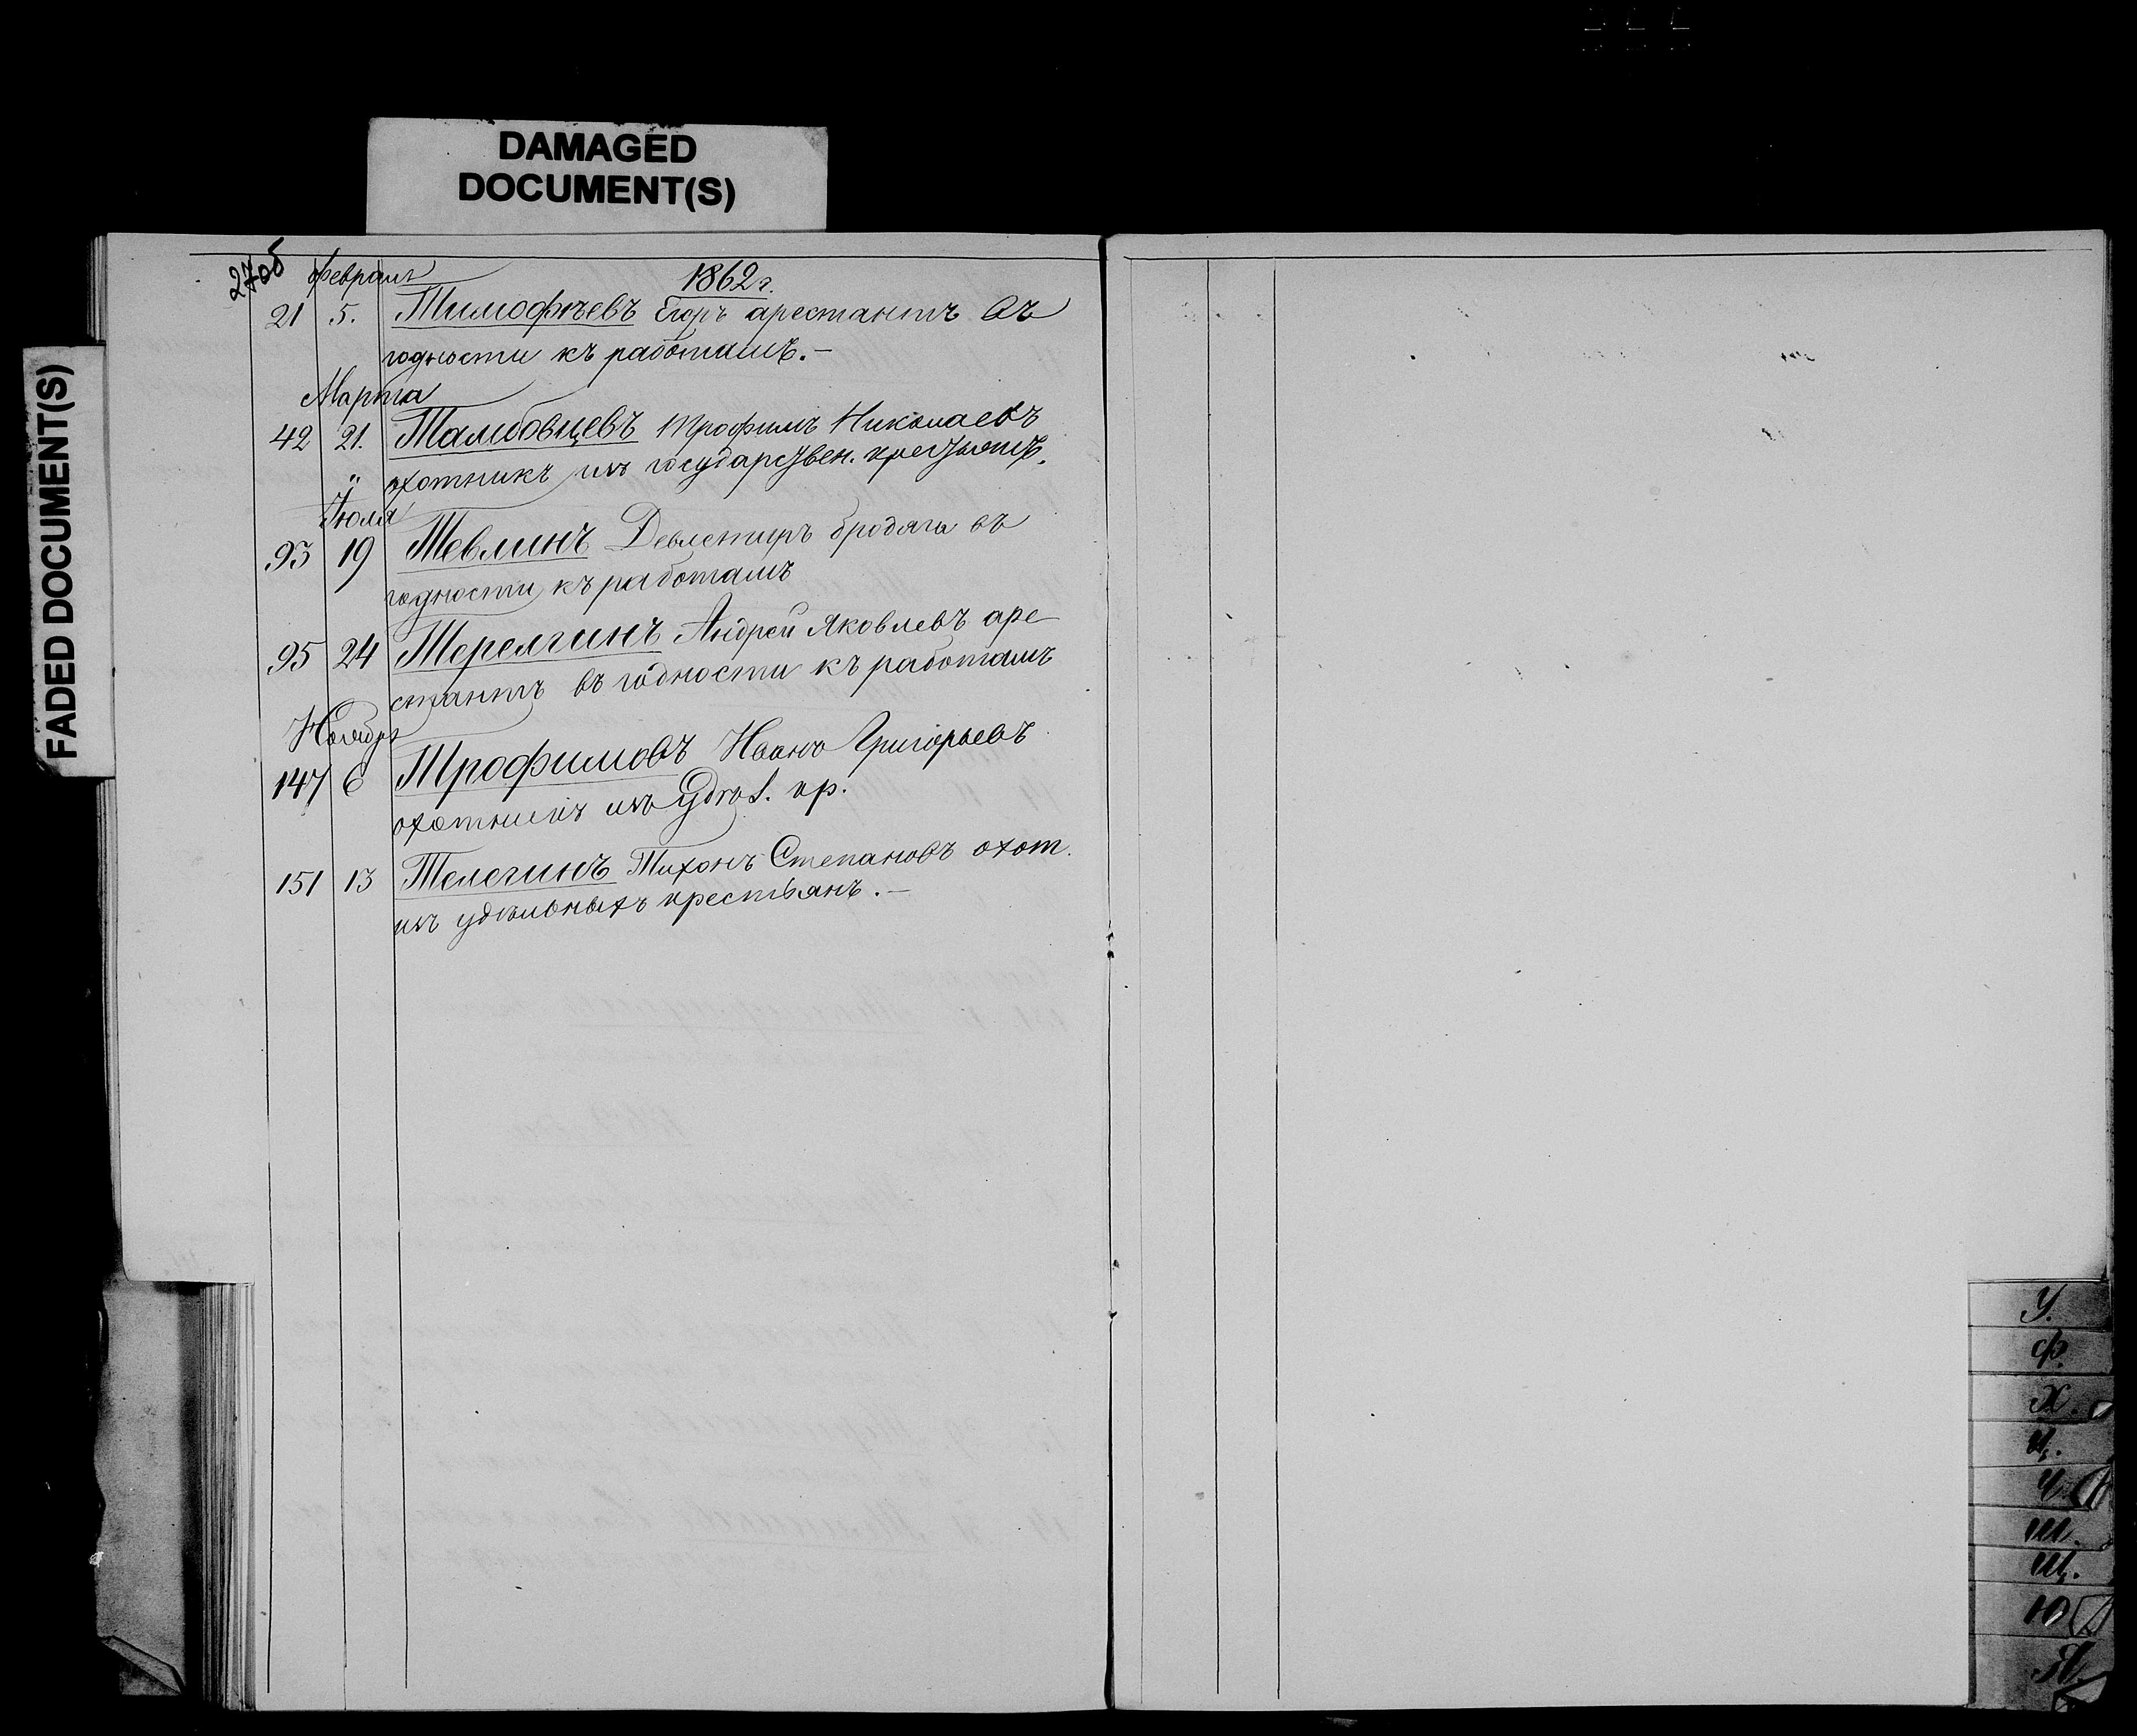 DAMAGED
DOCUMENT(S)
FADED DOCUMENT(S)
27об
Февраль
1862 г.
21 5. Тимофѣевъ Егоръ арестантъ въ
годности къ работамъ.—
Марта
42 21. Тамбовцевъ Трофимъ Николаевъ
охотникъ изъ государствен. крестьянъ.
"
Іюля
93 19 Тевлинъ бродяга въ
годности къ работамъ
95 24 Терелгинъ Андрей Яковлевъ аре-
стантъ въ годности къ работамъ
Ноября
147 6 Трофимовъ Иванъ Григорьевъ
охотникъ изъ кр.
151 13 Телегинъ Тихонъ Степановъ охот.
изъ удѣльныхъ крестьянъ.—
У.
Ф.
Х.
Ц.
Ч.
Ш.
Щ.
Ю
Я